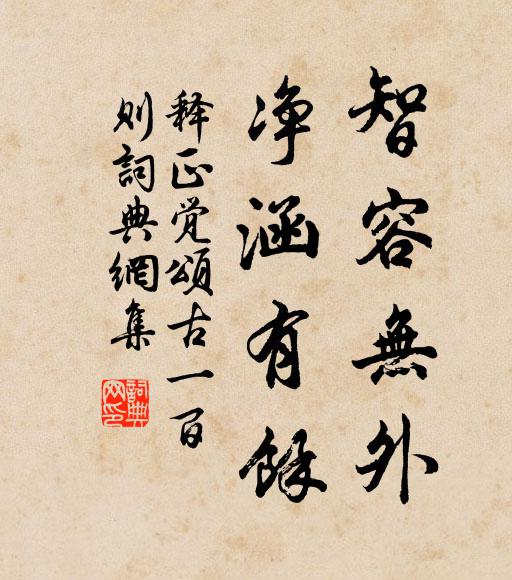 智容無外
净涵有餘
释正覚頌古一百
则詞典網集
詞典
网印